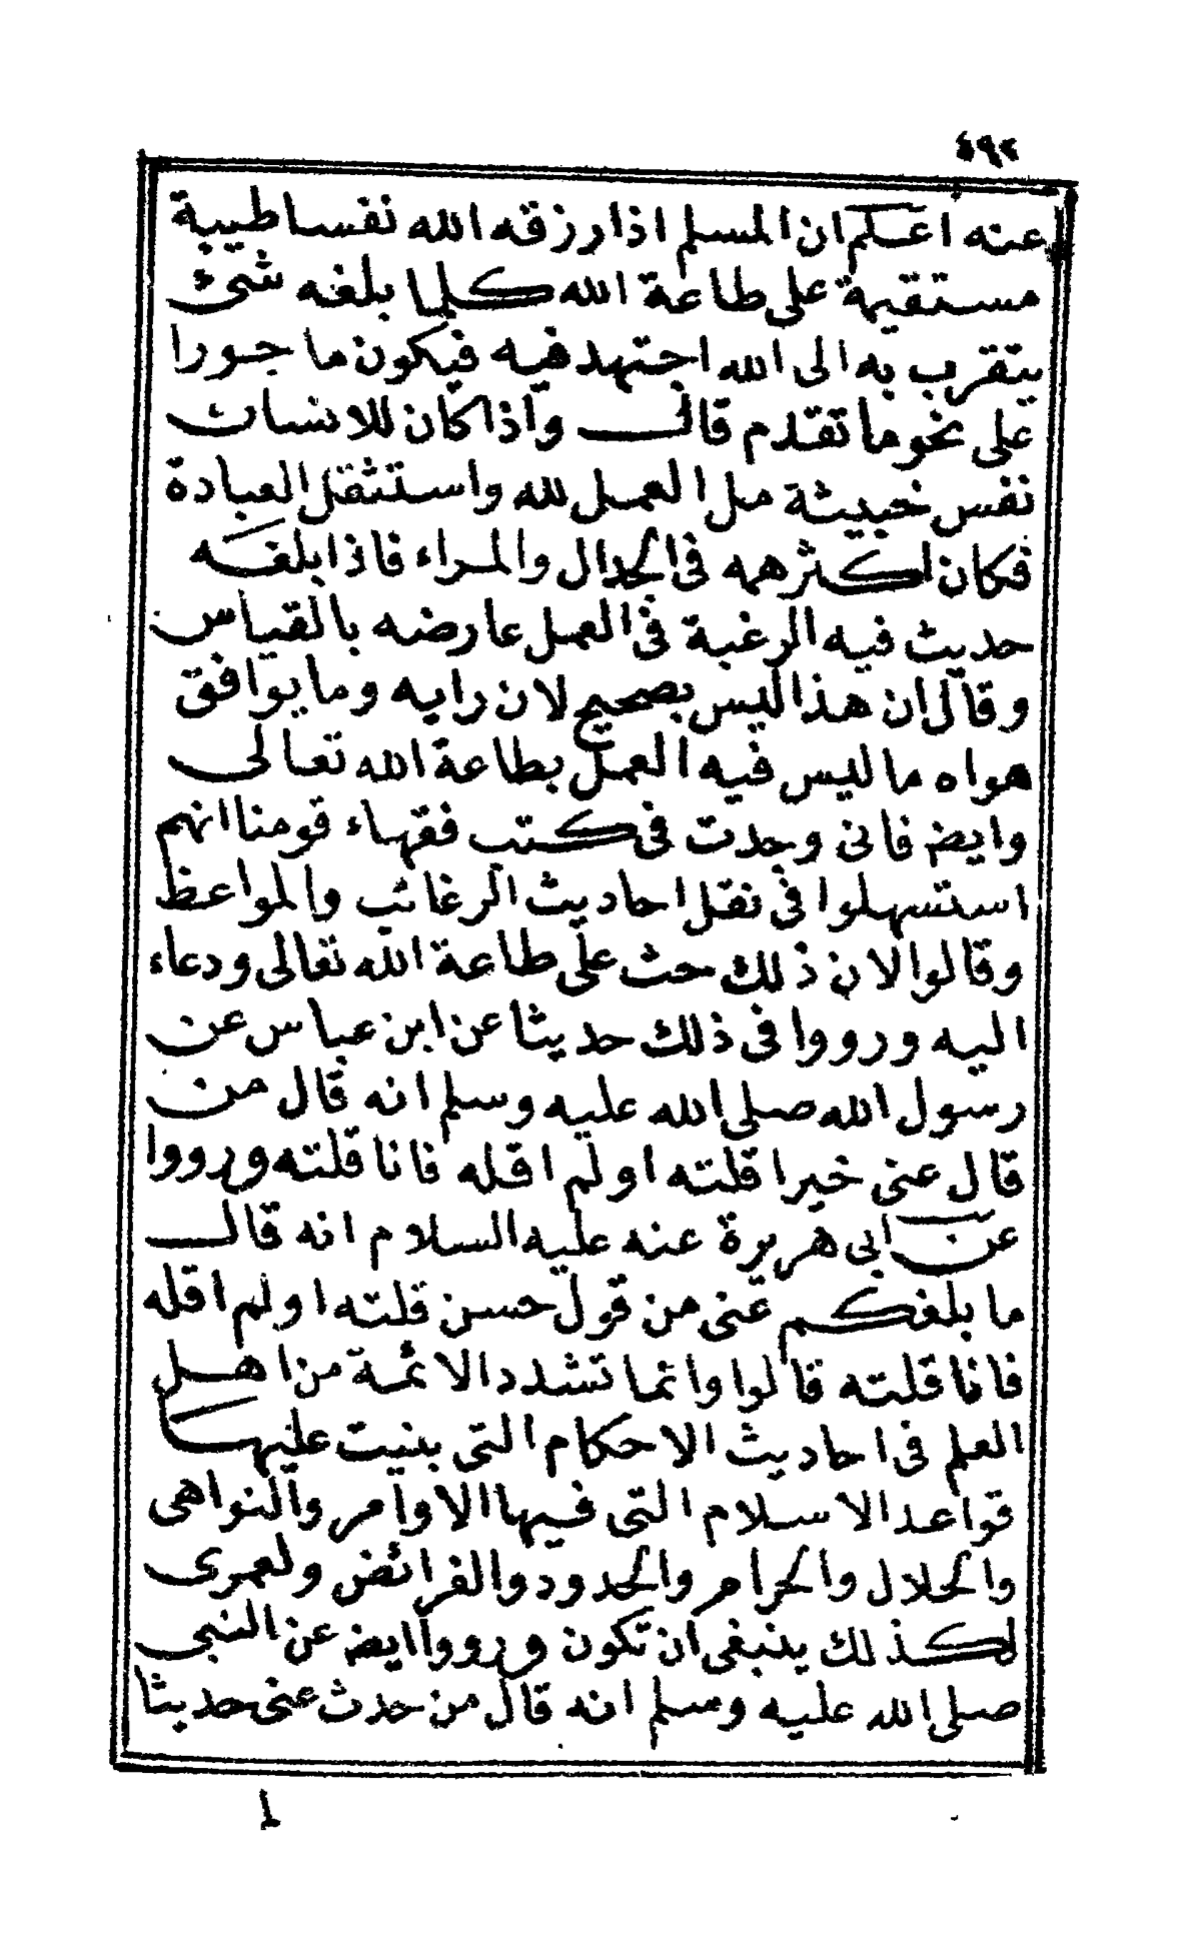 ٤٩٢
عنه اعلم ان المسلم اذا رزقه الله نفسا طيبة
مستقيمة على طاعة الله كلما بلغه شئ
يتقرب به الى الله اجتهد فيه فيكون ماجورا
على نحو ما تقدم قال واذا كان للانسان
نفس خبيثة مل العمل لله واستثقل العبادة
فكان اكثر همه فى الجدال والمراء فاذا بلغه
حديث فيه الرغبة فى العمل عارضه بالقياس
وقال ان هذا ليس بصحيح لان رايه وما يوافق
هواه ما ليس فيه العمل بطاعة الله تعالى
وايض فانى وجدت فى كتب فقهاء قومنا انهم
استسهلوا فى نقل احاديث الرغائب والمواعظ
وقالوا لان ذلك حث على طاعة الله تعالى ودعاء
اليه ورووا فى ذلك حديثا عن ابن عباس عن
رسول الله صلى الله عليه وسلم انه قال من
قال عنى خيرا قلته او لم اقله فانا قلته ورووا
عن ابى هريرة عنه عليه السلام انه قال
ما بلغكم عنى من قول حسن قلته او لم اقله
فانا قلته قالوا وانما تشدد الائمة من اهل
العلم فى احاديث الاحكام التى بنيت عليها
قواعد الاسلام التى فيها الاوامر والنواهى
والحلال والحرام والحدود والفرائض ولعمرى
لكذلك ينبغى ان تكون ورووا ايض عن النبى
صلى الله عليه وسلم انه قال من حدث عنى حديثا